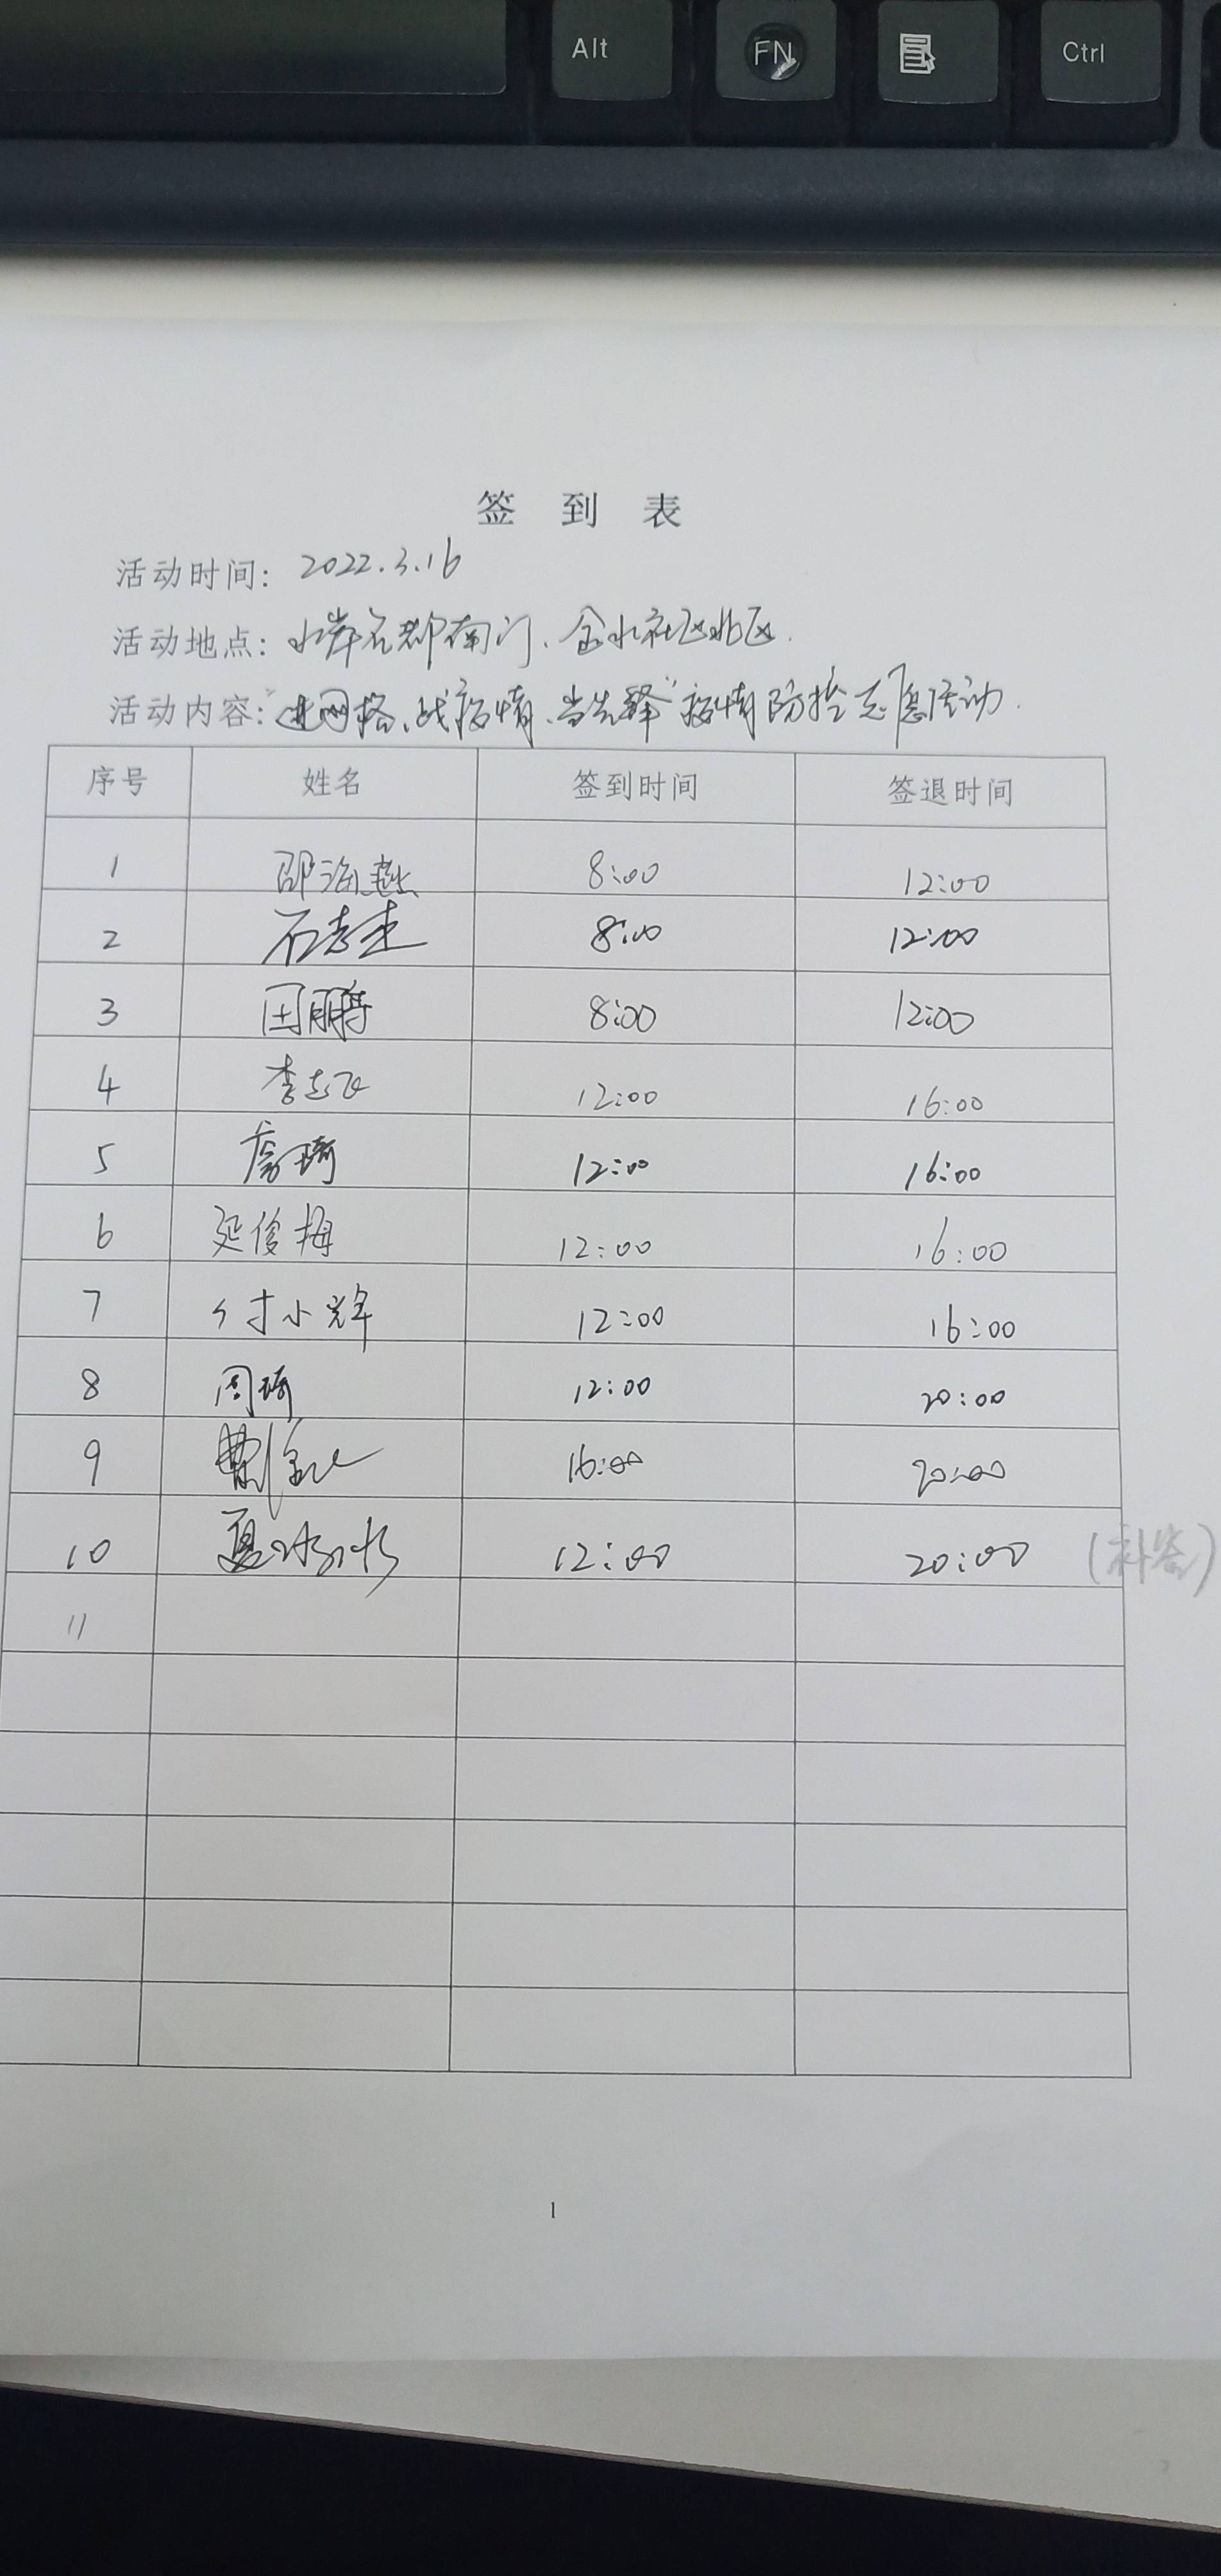 Alt FN Ctrl
签 到 表
活动时间: 2022.3.16
活动地点: 水岸名都南门、金水社区北区.
活动内容: "进网格、战疫情、当先锋"疫情防控志愿活动.
序号 姓名 签到时间 签退时间
1 邵海燕 8:00 12:00
2 石志杰 8:00 12:00
3 田鹏 8:00 12:00
4 李志飞 12:00 16:00
5 琦 12:00 16:00
6 延俊梅 12:00 16:00
7 付小辉 12:00 16:00
8 周琦 12:00 20:00
9 曹 16:00 20:00
10 夏 12:00 20:00 (补签)
11
1